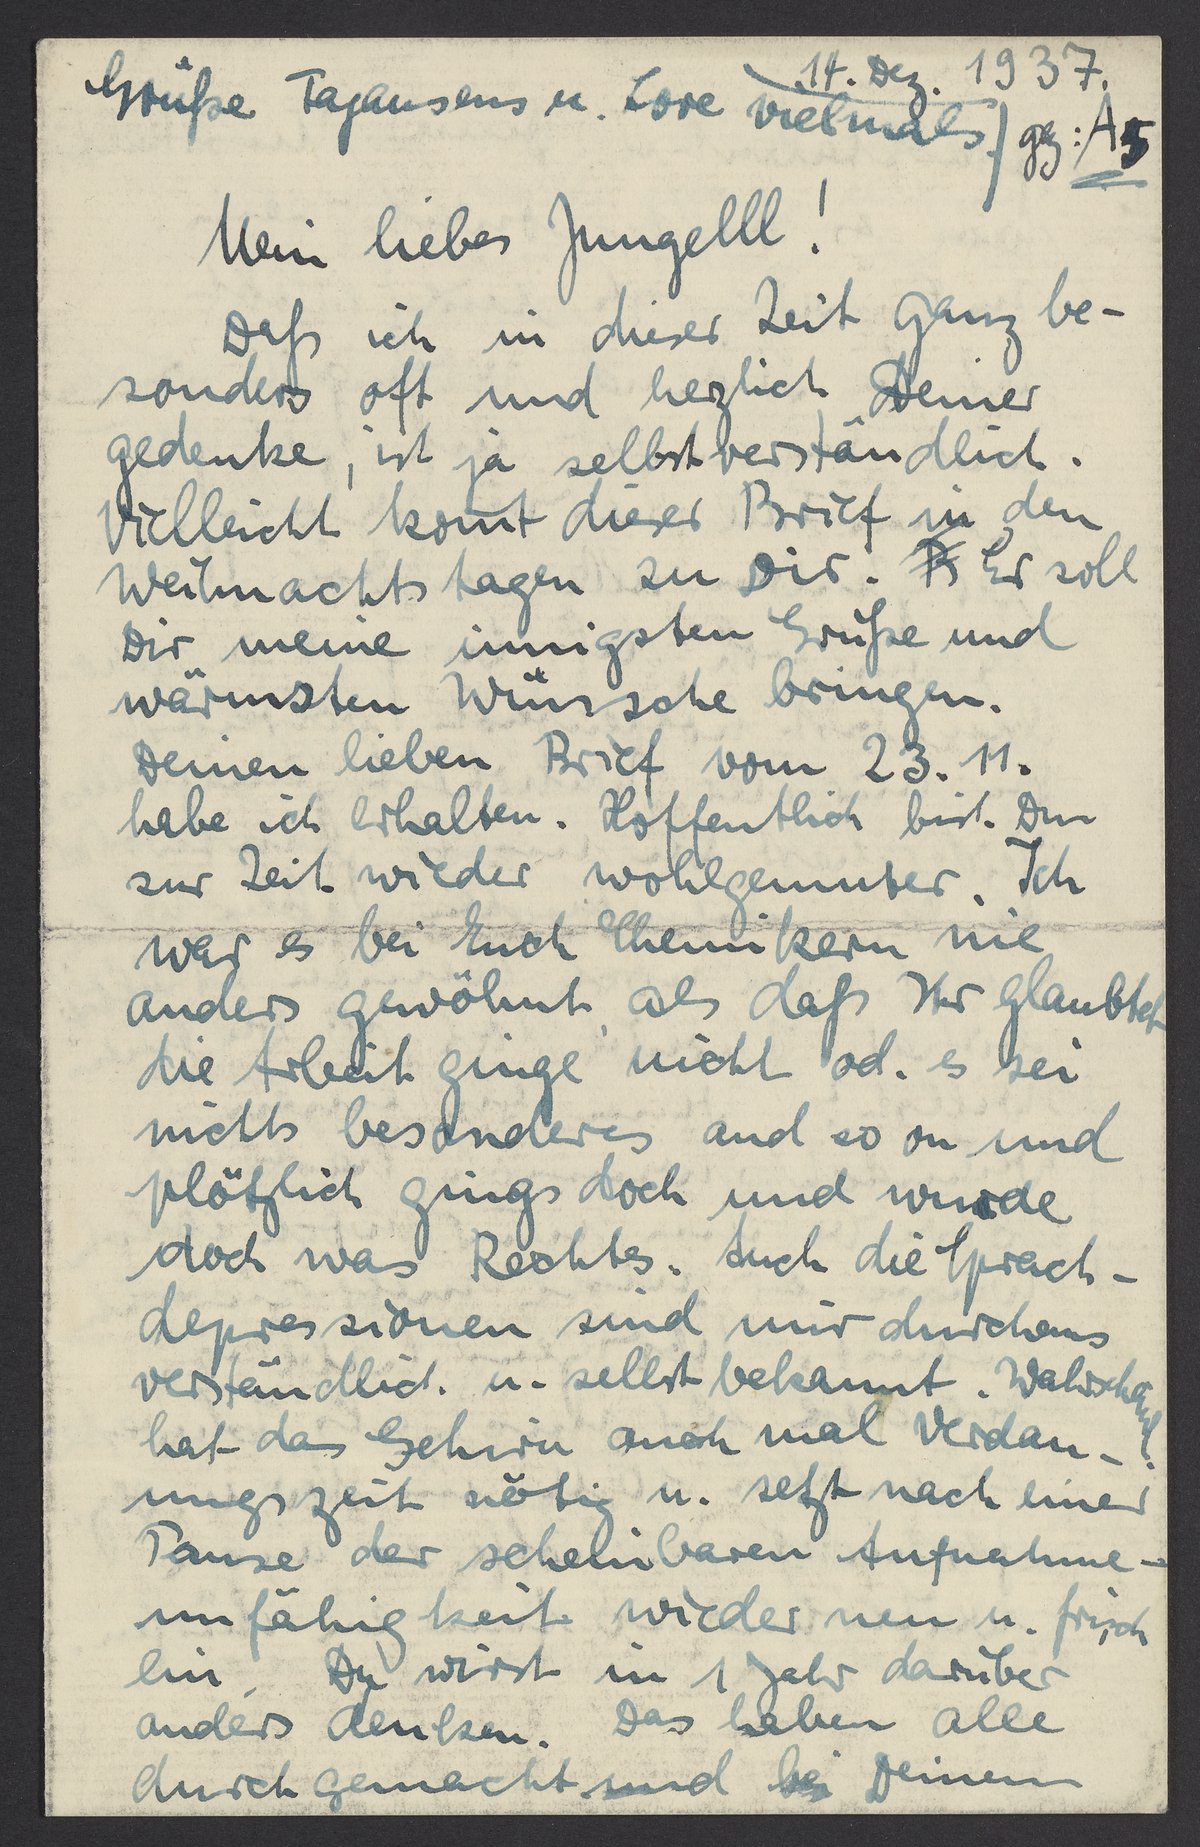 14. Dez. 1937.
Grüße Tajansens u. Lore vielmals
gz: A5
Mein liebes Jungelll!
Daß ich in dieser Zeit ganz be-
sonders oft und herzlich Deiner
gedenke, ist ja selbstverständlich.
Vielleicht komt dieser Brief in den
Weihnachtstagen zu Dir. Er soll
Dir meine innigsten Grüße und
wärmsten Wünsche bringen.
Deinen lieben Brief vom 23. 11.
habe ich erhalten. Hoffentlich bist Du
zur Zeit wieder wohlgemuter. Ich
war es bei Euch Chemikern nie
anders gewöhnt, als daß Ihr glaubtet
die Arbeit ginge nicht od. es sei
nichts besonderes and so on und
plötzlich gings doch und wurde
doch was Rechtes. Auch die Sprach-
depressionen sind mir durchaus
verständlich u. selbst bekannt. Wahrscheinl.
hat das Gehirn auch mal Verdau-
ungszeit nötig u. setzt nach einer
Pause der scheinbaren Aufnahme-
unfähigkeit wieder neu u. frisch
ein. Du wirst in 1 Jahr darüber
anders denken. Das haben alle
durchgemacht und bei Deinem